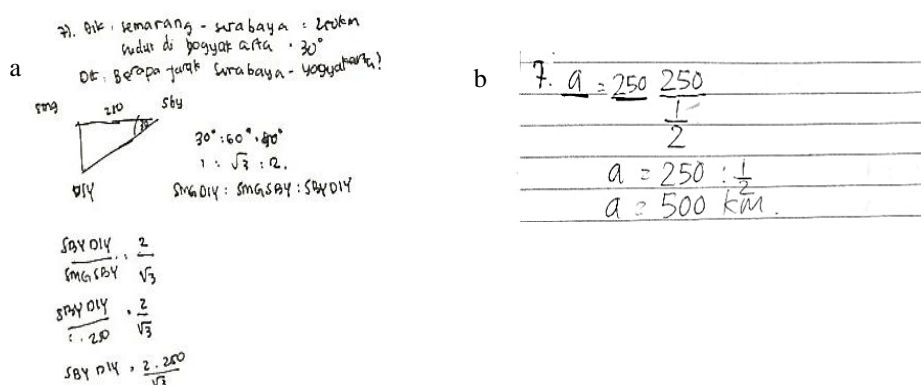 a
7). Dik : semarang - surabaya = 250km
sudut di yogyakarta = 30°
Dit : Berapa jarak Surabaya - yogyakarta?
smg 250 Sby
DIY
30° : 60° : 90°
1 : √3 : 2.
SMGDIY : SMGSBY : SBYDIY
SBYDIY / SMGSBY = 2 / √3
SBYDIY / 250 = 2 / √3
SBY DIY = 2 . 250 / √3
b
7. a = 250 250 / 1/2
a = 250 : 1/2
a = 500 km.